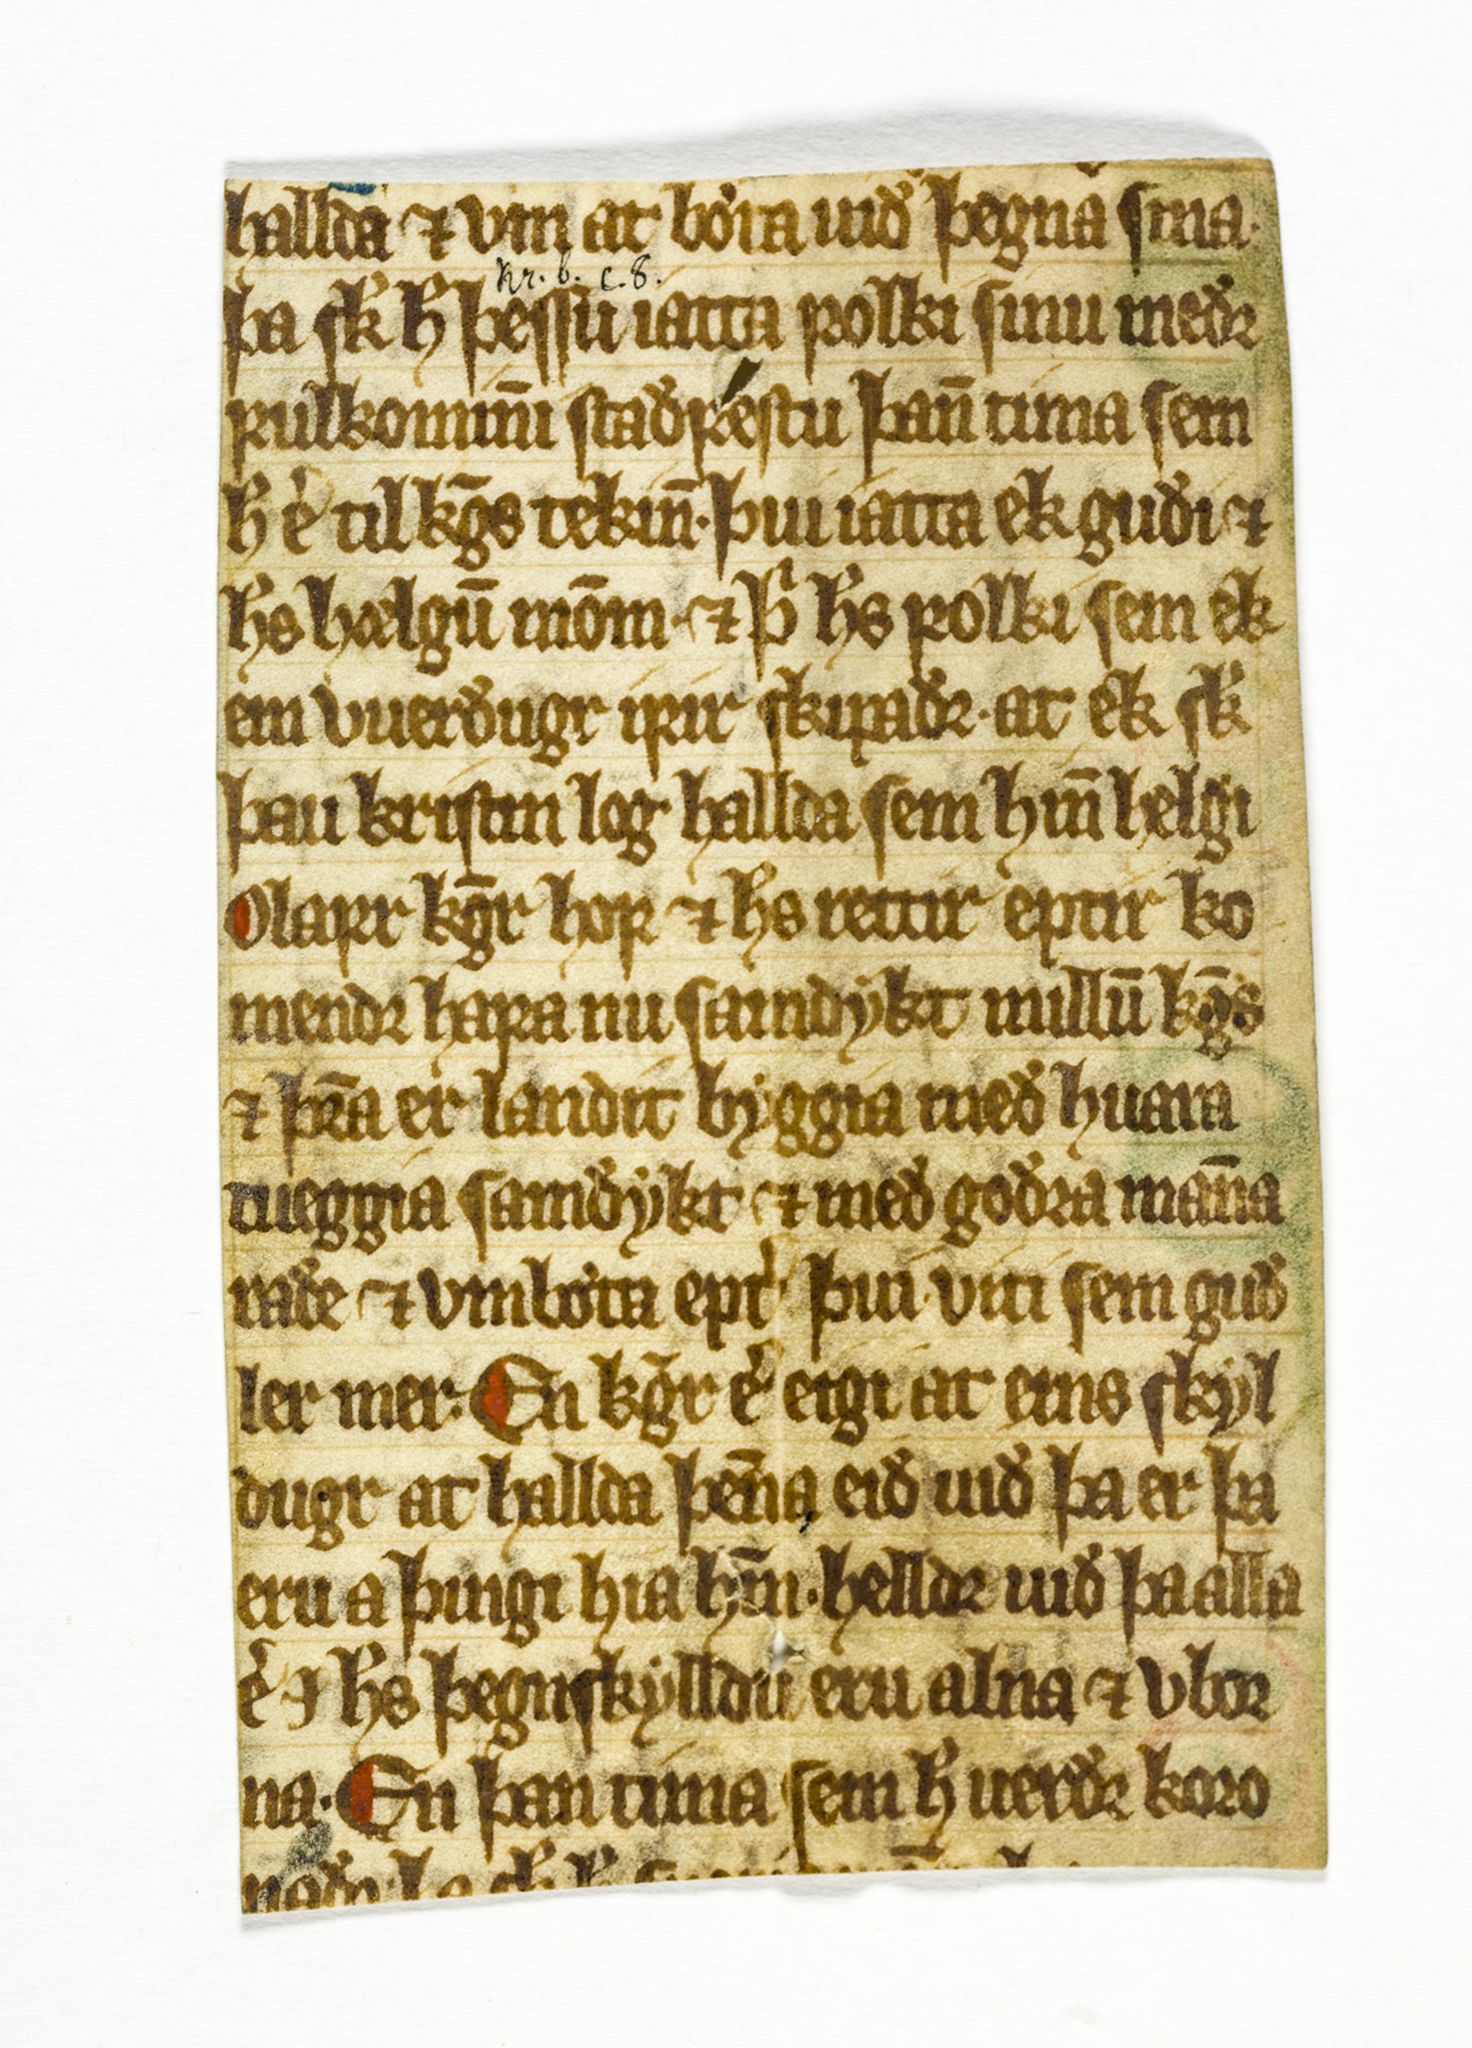 hallda ⁊ vm at bǿta uið þegna sina·
Kr. b. c. 8.
þa sk̛ h̄ þessu iatta ꝼolki sinu meðr
ꝼulkomīni staðꝼestu þan̄ tima sem
h̄ e͛ til kḡs tekin̄· þui iatta ek guði ⁊
h̄s hælgū mōm· ⁊ þ̛ h̄s ꝼolki sem ek
em vuerðugr iꝼir skipaðr· at ek sk̛
þau kristin log hallda sem hin̄ helgi
Olaꝼr kḡr hoꝼ ⁊ h̄s rettir eptir ko
mendr haꝼa nu samdykt millū kḡs
⁊ þr̄a er landit byggia með huara
tueggia samðykt ⁊ með goðra man̄a
raðe ⁊ vmbǿta ept͛ þui viti sem guð
ler mer· En kḡr e͛ eigi at eins skyl
dugr at hallda þen̄a eið uið þa er þa
eru a þingi hia hm̄· helldr uið þa alla
e͛ j h̄s þegnskylldu eru alna ⁊ vbor
na· En þan tima sem h̄ uerðr koro